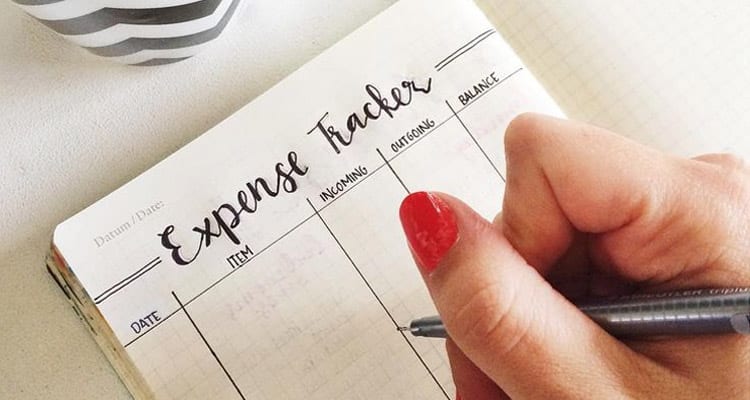 Datum / Date:
Expense Tracker
DATE ITEM INCOMING OUTGOING BALANCE